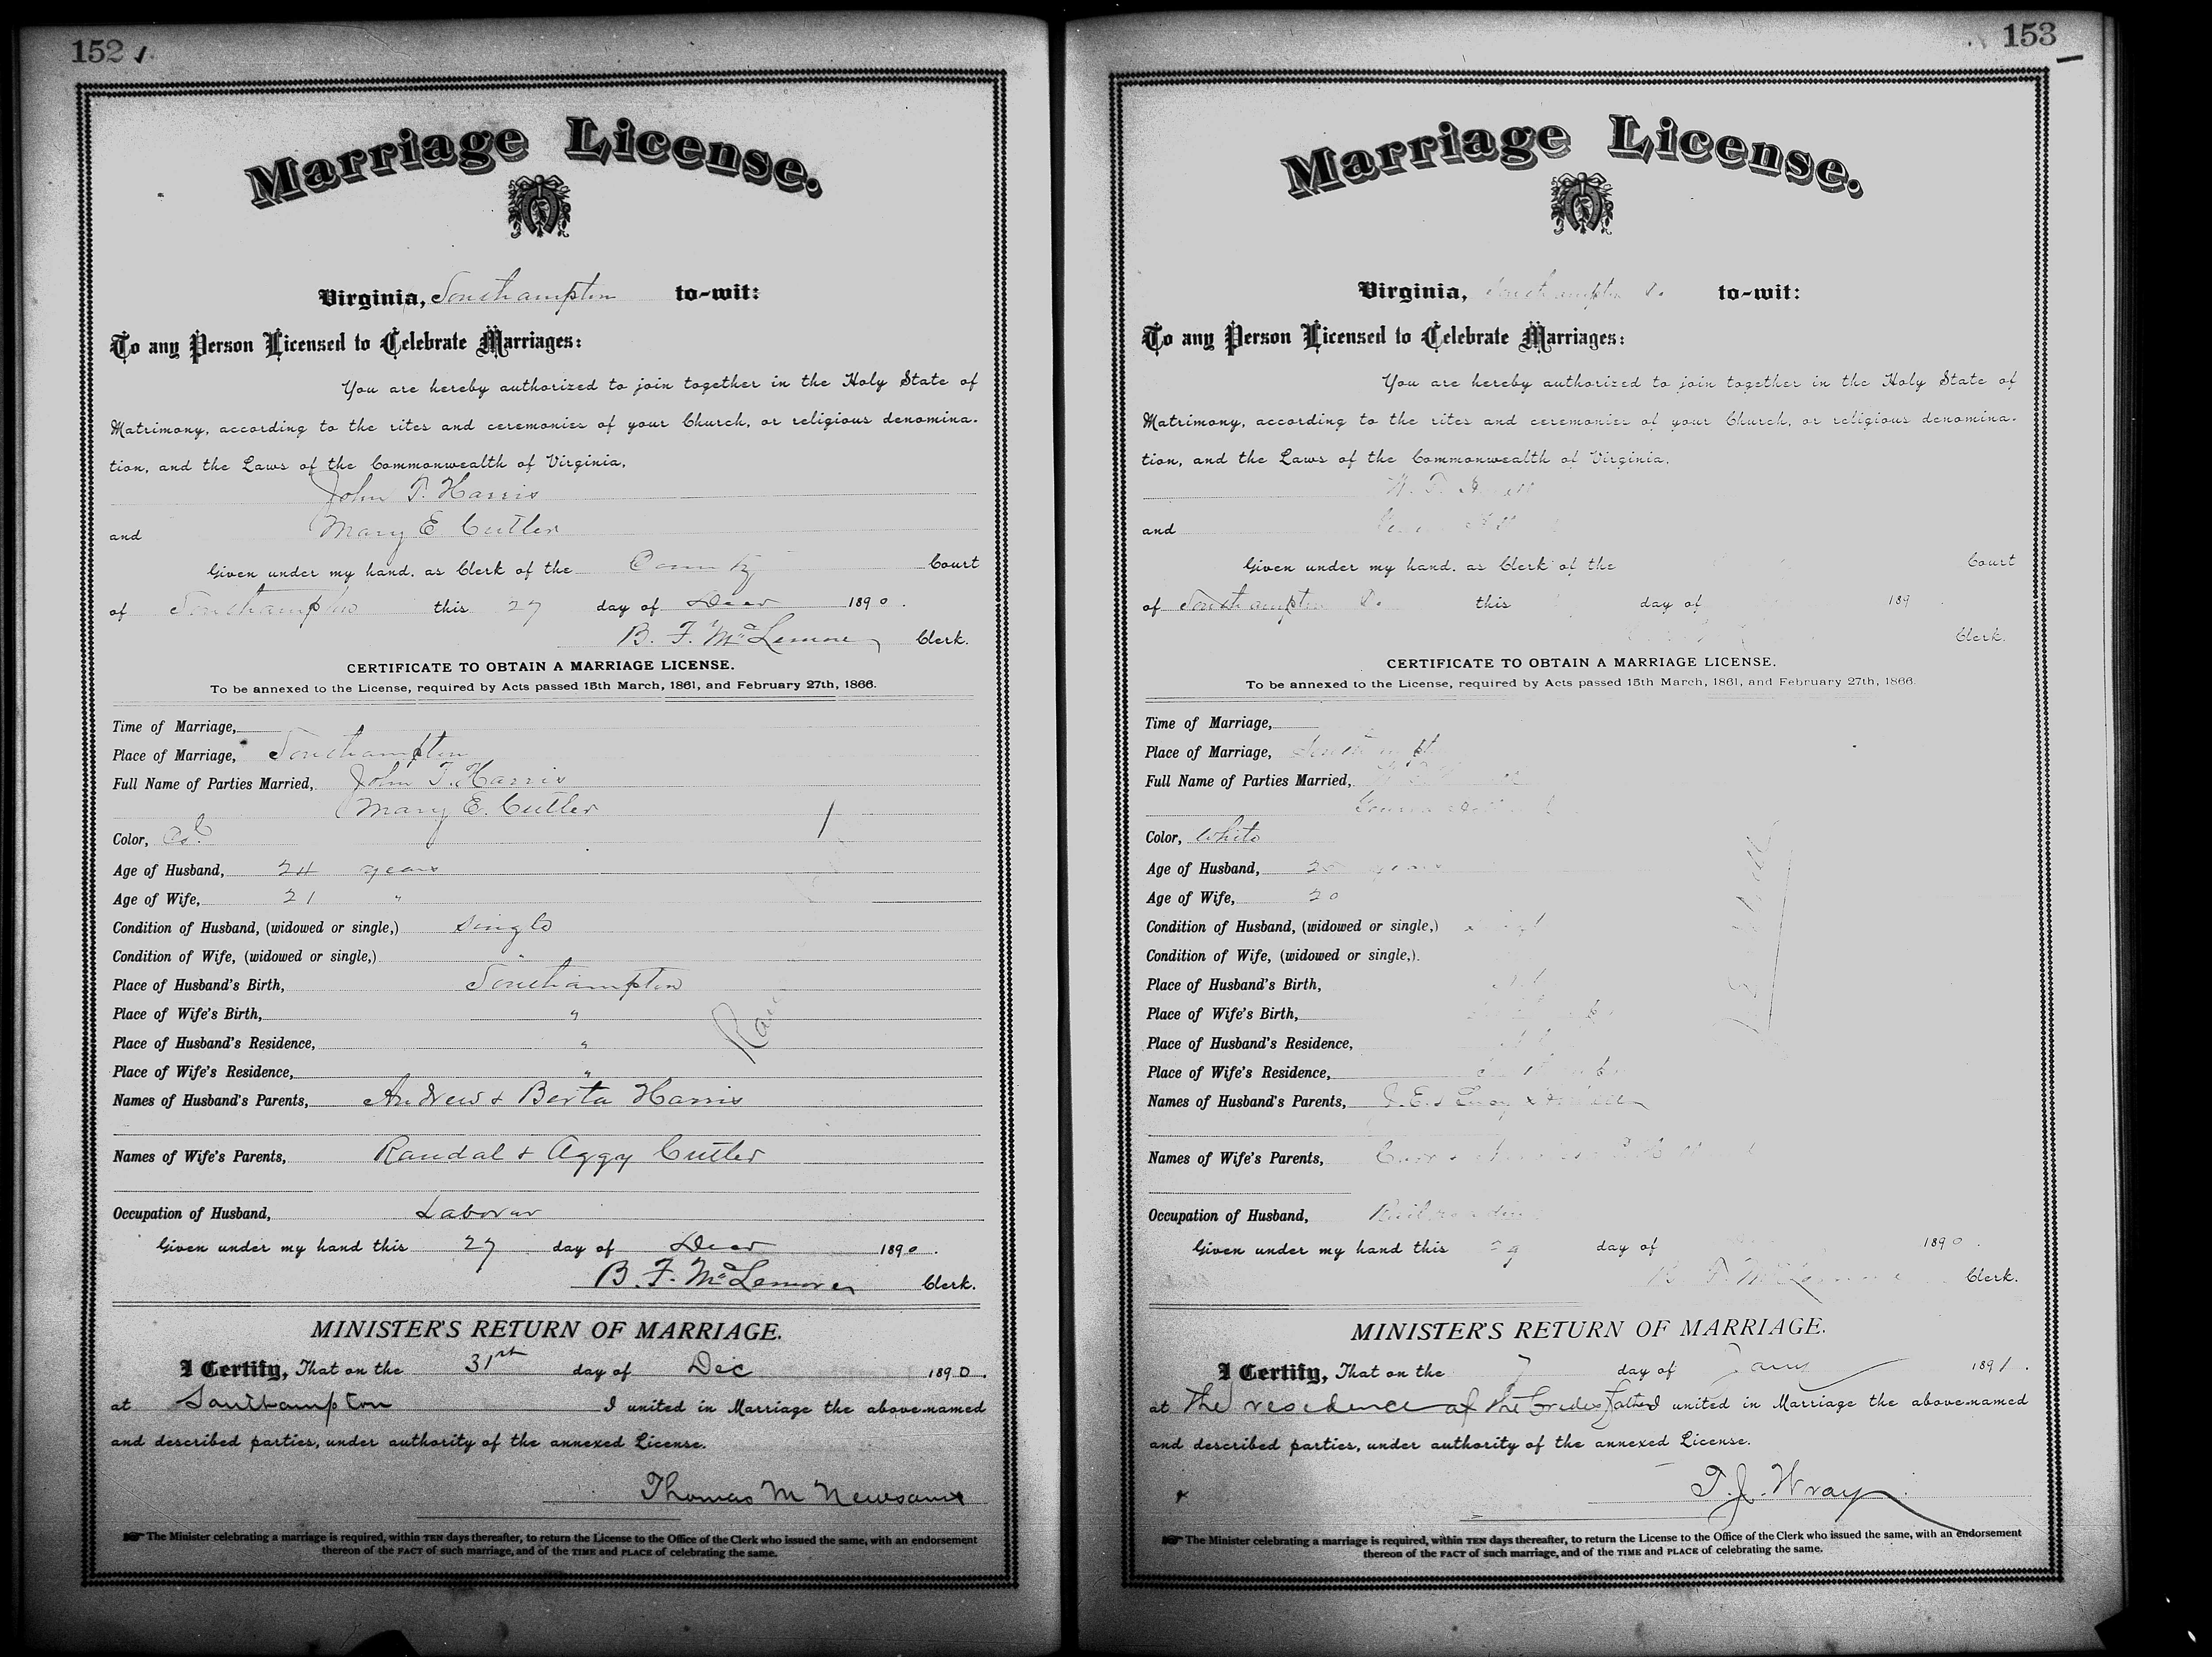 152
Marriage License.
Virginia, Southampton to-wit:
To any Person Licensed to Celebrate Marriages:
You are hereby authorized to join together in the Holy State of
Matrimony, according to the rites and ceremonies of your Church, or religious denomina-
tion, and the Laws of the Commonwealth of Virginia,
John T. Harris
and Mary E Cutler
Given under my hand, as Clerk of the County Court
of Southampton this 27 day of Decr 1890.
B. F. McLemore Clerk.
CERTIFICATE TO OBTAIN A MARRIAGE LICENSE.
To be annexed to the License, required by Acts passed 15th March, 1861, and February 27th, 1866.
Time of Marriage,
Place of Marriage, Southampton
Full Name of Parties Married, John T. Harris
Mary E. Cutler
Color, Col
Age of Husband, 24 years
Age of Wife, 21 "
Condition of Husband, (widowed or single,) single
Condition of Wife, (widowed or single,) "
Place of Husband's Birth, Southampton
Place of Wife's Birth, "
Place of Husband's Residence, "
Place of Wife's Residence, "
Names of Husband's Parents, Andrew & Berta Harris
Names of Wife's Parents, Randal & Aggy Cutler
Occupation of Husband, Laborer
Given under my hand this 27 day of Decr 1890.
B. F. McLemore Clerk.
MINISTER'S RETURN OF MARRIAGE.
I Certify, That on the 31st day of Dec 1890.
at Southampton I united in Marriage the above-named
and described parties, under authority of the annexed License.
Thomas M Newsome
The Minister celebrating a marriage is required, within TEN days thereafter, to return the License to the Office of the Clerk who issued the same, with an endorsement
thereon of the FACT of such marriage, and of the TIME and PLACE of celebrating the same.
153
Marriage License.
Virginia, Southampton Co to-wit:
To any Person Licensed to Celebrate Marriages:
You are hereby authorized to join together in the Holy State of
Matrimony, according to the rites and ceremonies of your Church, or religious denomina-
tion, and the Laws of the Commonwealth of Virginia,
and
Given under my hand, as Clerk of the Court
of Southampton Co this day of 189
Clerk.
CERTIFICATE TO OBTAIN A MARRIAGE LICENSE.
To be annexed to the License, required by Acts passed 15th March, 1861, and February 27th, 1866.
Time of Marriage,
Place of Marriage, Southampton
Full Name of Parties Married,
Color, White
Age of Husband, 25 years
Age of Wife, 20
Condition of Husband, (widowed or single,) single
Condition of Wife, (widowed or single,)
Place of Husband's Birth,
Place of Wife's Birth,
Place of Husband's Residence,
Place of Wife's Residence,
Names of Husband's Parents, J. E. & Lucy
Names of Wife's Parents,
Occupation of Husband, Railroading
Given under my hand this 29 day of 1890.
B. F. McLemore Clerk.
MINISTER'S RETURN OF MARRIAGE.
I Certify, That on the 7 day of Jany 1891.
at The residence of the brides father I united in Marriage the above-named
and described parties, under authority of the annexed License.
T. J. Wray
The Minister celebrating a marriage is required, within TEN days thereafter, to return the License to the Office of the Clerk who issued the same, with an endorsement
thereon of the FACT of such marriage, and of the TIME and PLACE of celebrating the same.